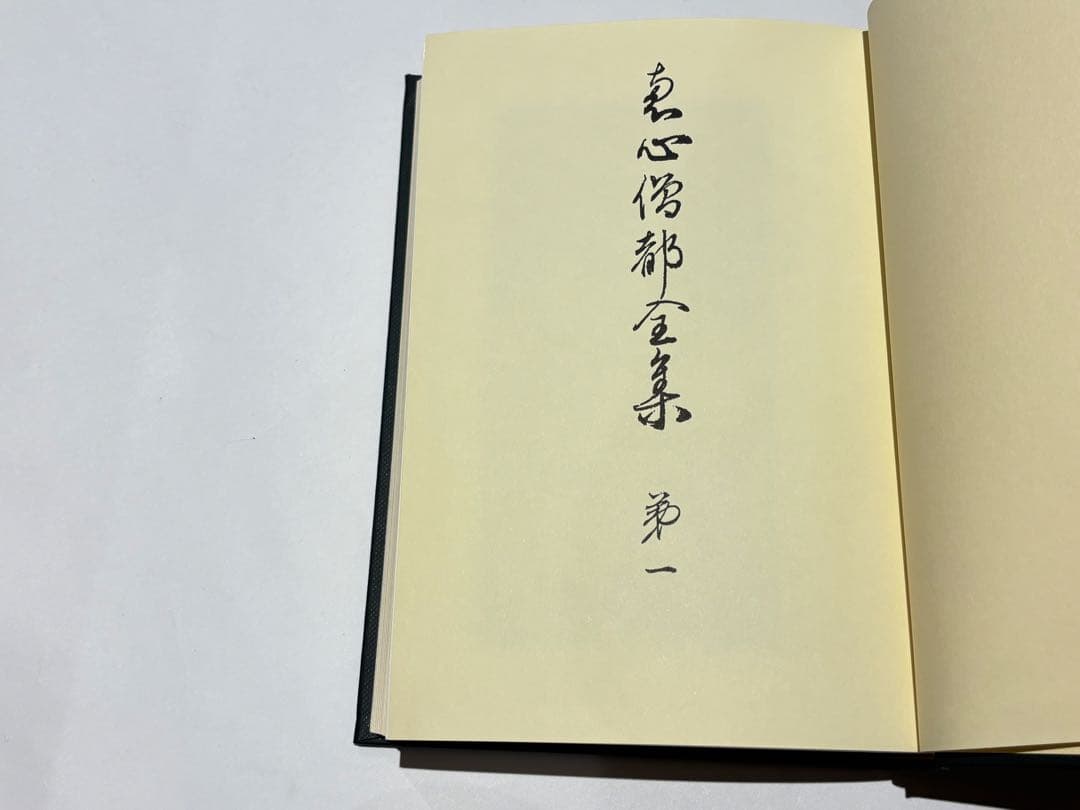 恵心僧都全集 第一